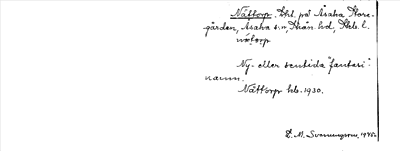 Nättorp. Lht. på Asaka Store-
gården, Asaka s:n Kåk. hd, Skb. l.
nätorp
Ny- eller sentida "fantasi"-
namn.
Nättorp hb. 1930.
D. M. Svenungsson, 1945.